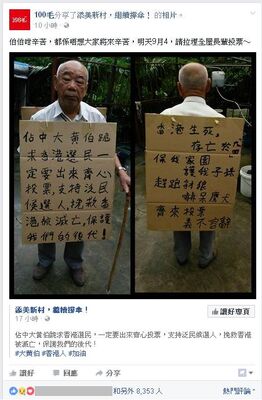 100毛分享了添美新村，繼續撐傘！ 的相片。
10 小時 ·
伯伯咁辛苦，都係唔想大家將來辛苦，明天9月4，請拉埋全屋長輩投票～
佔中大黃伯跪
求香港選民一
定要出來齊心
投票，支持泛民
候選人，挽救香
港被滅亡，保護
我們的後代！
香港生死，
存亡
保我家園
護我子孫
豺狼
嚇呆鷹犬
齊來投票
義不容辭
添美新村，繼續撐傘！
17 小時 ·
讚好專頁
佔中大黃伯跪求香港選民，一定要出來齊心投票，支持泛民候選人，挽救香港
被滅亡，保護我們的後代！
#大黃伯 #香港人 #加油
讚好 回應 分享
和另外 8,353 人
熱門評論